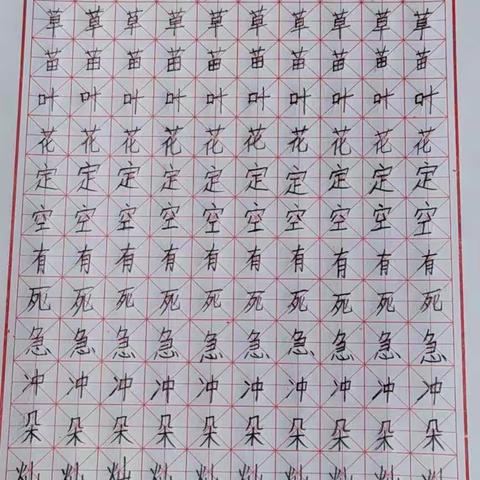 草草草草草草草草草草
苗苗苗苗苗苗苗苗苗苗
叶叶叶叶叶叶叶叶叶叶
花花花花花花花花花花
定定定定定定定定定定
空空空空空空空空空空
有有有有有有有有有有
死死死死死死死死死死
急急急急急急急急急急
冲冲冲冲冲冲冲冲冲冲
朵朵朵朵朵朵朵朵朵朵